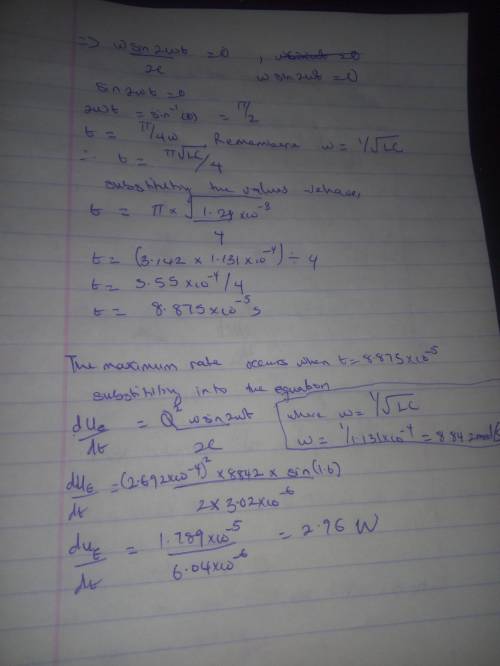 => w sin2wt / 2c = 0 ,
w sin2wt = 0
sin 2wt = 0
2wt = sin⁻¹(0) = π/2
t = π/4w Remember w = 1/√LC
∴ t = π√LC/4
substituting the values we have,
t = π × √1.28 × 10⁻⁸ / 4
t = (3.142 × 1.131 × 10⁻⁴) ÷ 4
t = 3.55 × 10⁻⁴ / 4
t = 8.875 × 10⁻⁵ s
The maximum rate occurs when t = 8.875 × 10⁻⁵
substituting into the equation
dUE/dt = Q² w sin2wt / 2c where w = 1/√LC
w = 1/1.131 × 10⁻⁴ = 8.842
dUE/dt = (2.692 × 10⁻⁴)² × 8842 × sin(1.6) / 2 × 3.02 × 10⁻⁶
dUE/dt = 1.789 × 10⁻⁵ / 6.04 × 10⁻⁶ = 2.96 W